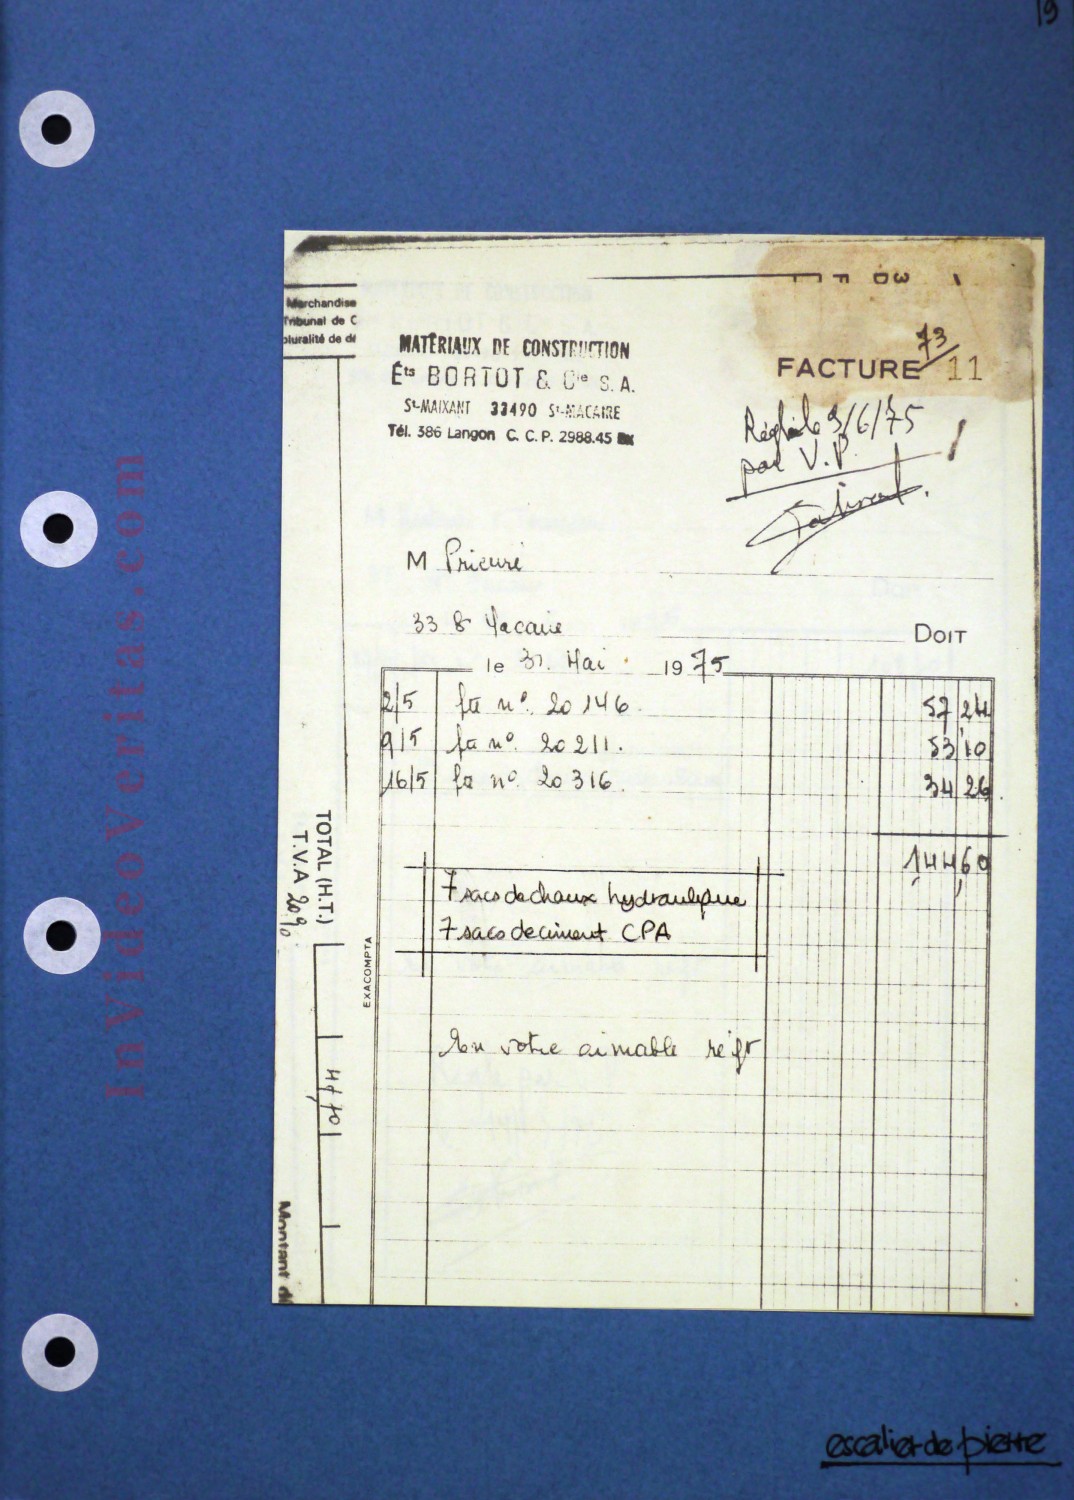 19
Marchandise
Tribunal de C
pluralité de dé
MATÉRIAUX DE CONSTRUCTION
Éts BORTOT & Cie S.A.
St-MAIXANT 33490 St-MACAIRE
Tél. 386 Langon C. C. P. 2988.45 Bx
FACTURE 11
73
Réglé le 9/6/75
par V.P.
M Prieuré
33 St Macaire DOIT
le 31. Mai 1975
2/5 fre n° 20 146. 57 24
9/5 fa n° 20 211. 53 10
16/5 fa n° 20 316. 34 26
144,60
7 sacs de chaux hydraulique
7 sacs de ciment CPA
En votre aimable régt
TOTAL (H.T.)
T.V.A 20%
EXACOMPTA
Montant d
InVideoVeritas.com
escalier de pierre